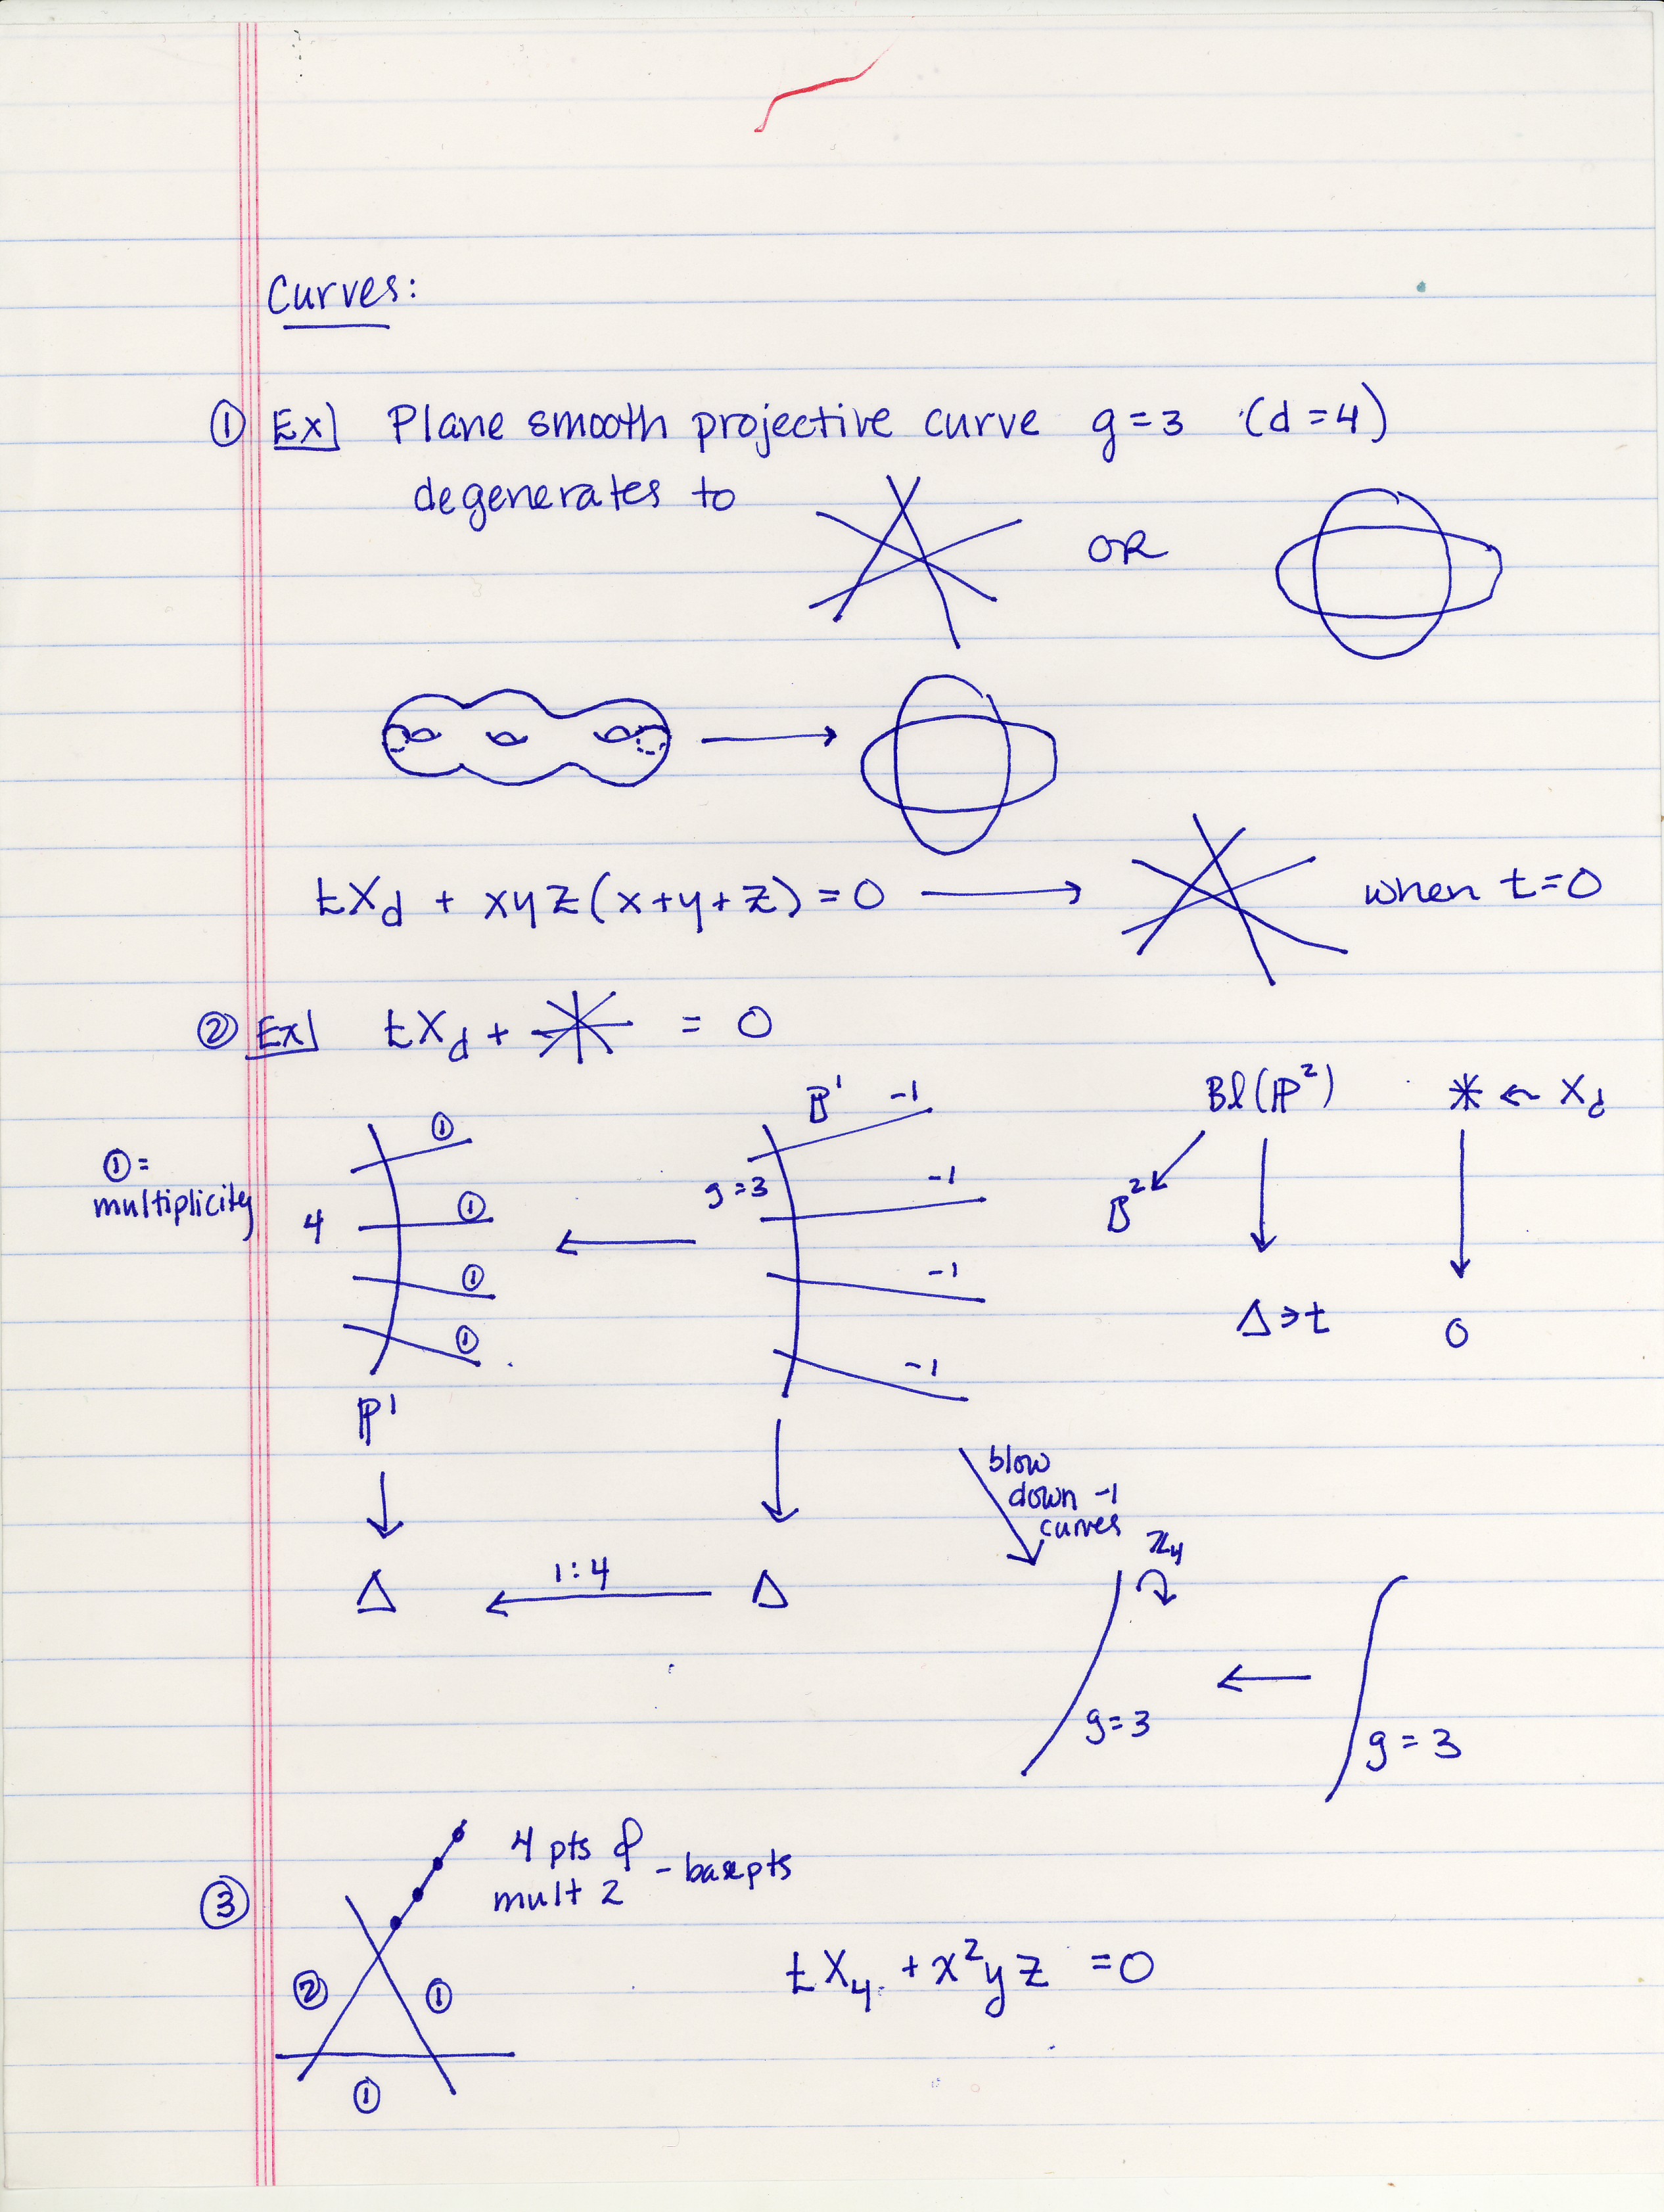 Curves:
① Ex] Plane smooth projective curve g=3 (d=4)
degenerates to
OR
tX_d + xyz(x+y+z)=0 ⟶ when t=0
② Ex] tX_d + = 0
①=
multiplicity
①
4 ①
①
①
ℙ¹
Δ
1:4
ℙ¹ -1
g=3 -1
-1
-1
Δ
Bl(ℙ²) * ← X_d
ℙ²
Δ∋t 0
blow
down -1
curves
ℤ₄
g=3
g=3
③
4 pts of - basepts
mult 2
② ①
①
tX₄ + x²yz =0